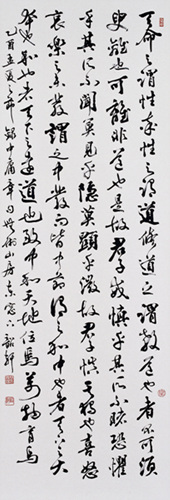 天命之謂性率性之謂道修道之謂教道也者不可須
臾離也可離非道也是故君子戒慎乎其所不睹恐懼
乎其所不聞莫見乎隱莫顯乎微故君子慎其獨也喜怒
哀樂之未發謂之中發而皆中節謂之和中也者天下之大
本也和也者天下之達道也致中和天地位焉萬物育焉
乙酉孟夏之節錄中庸章句於山房東窗下